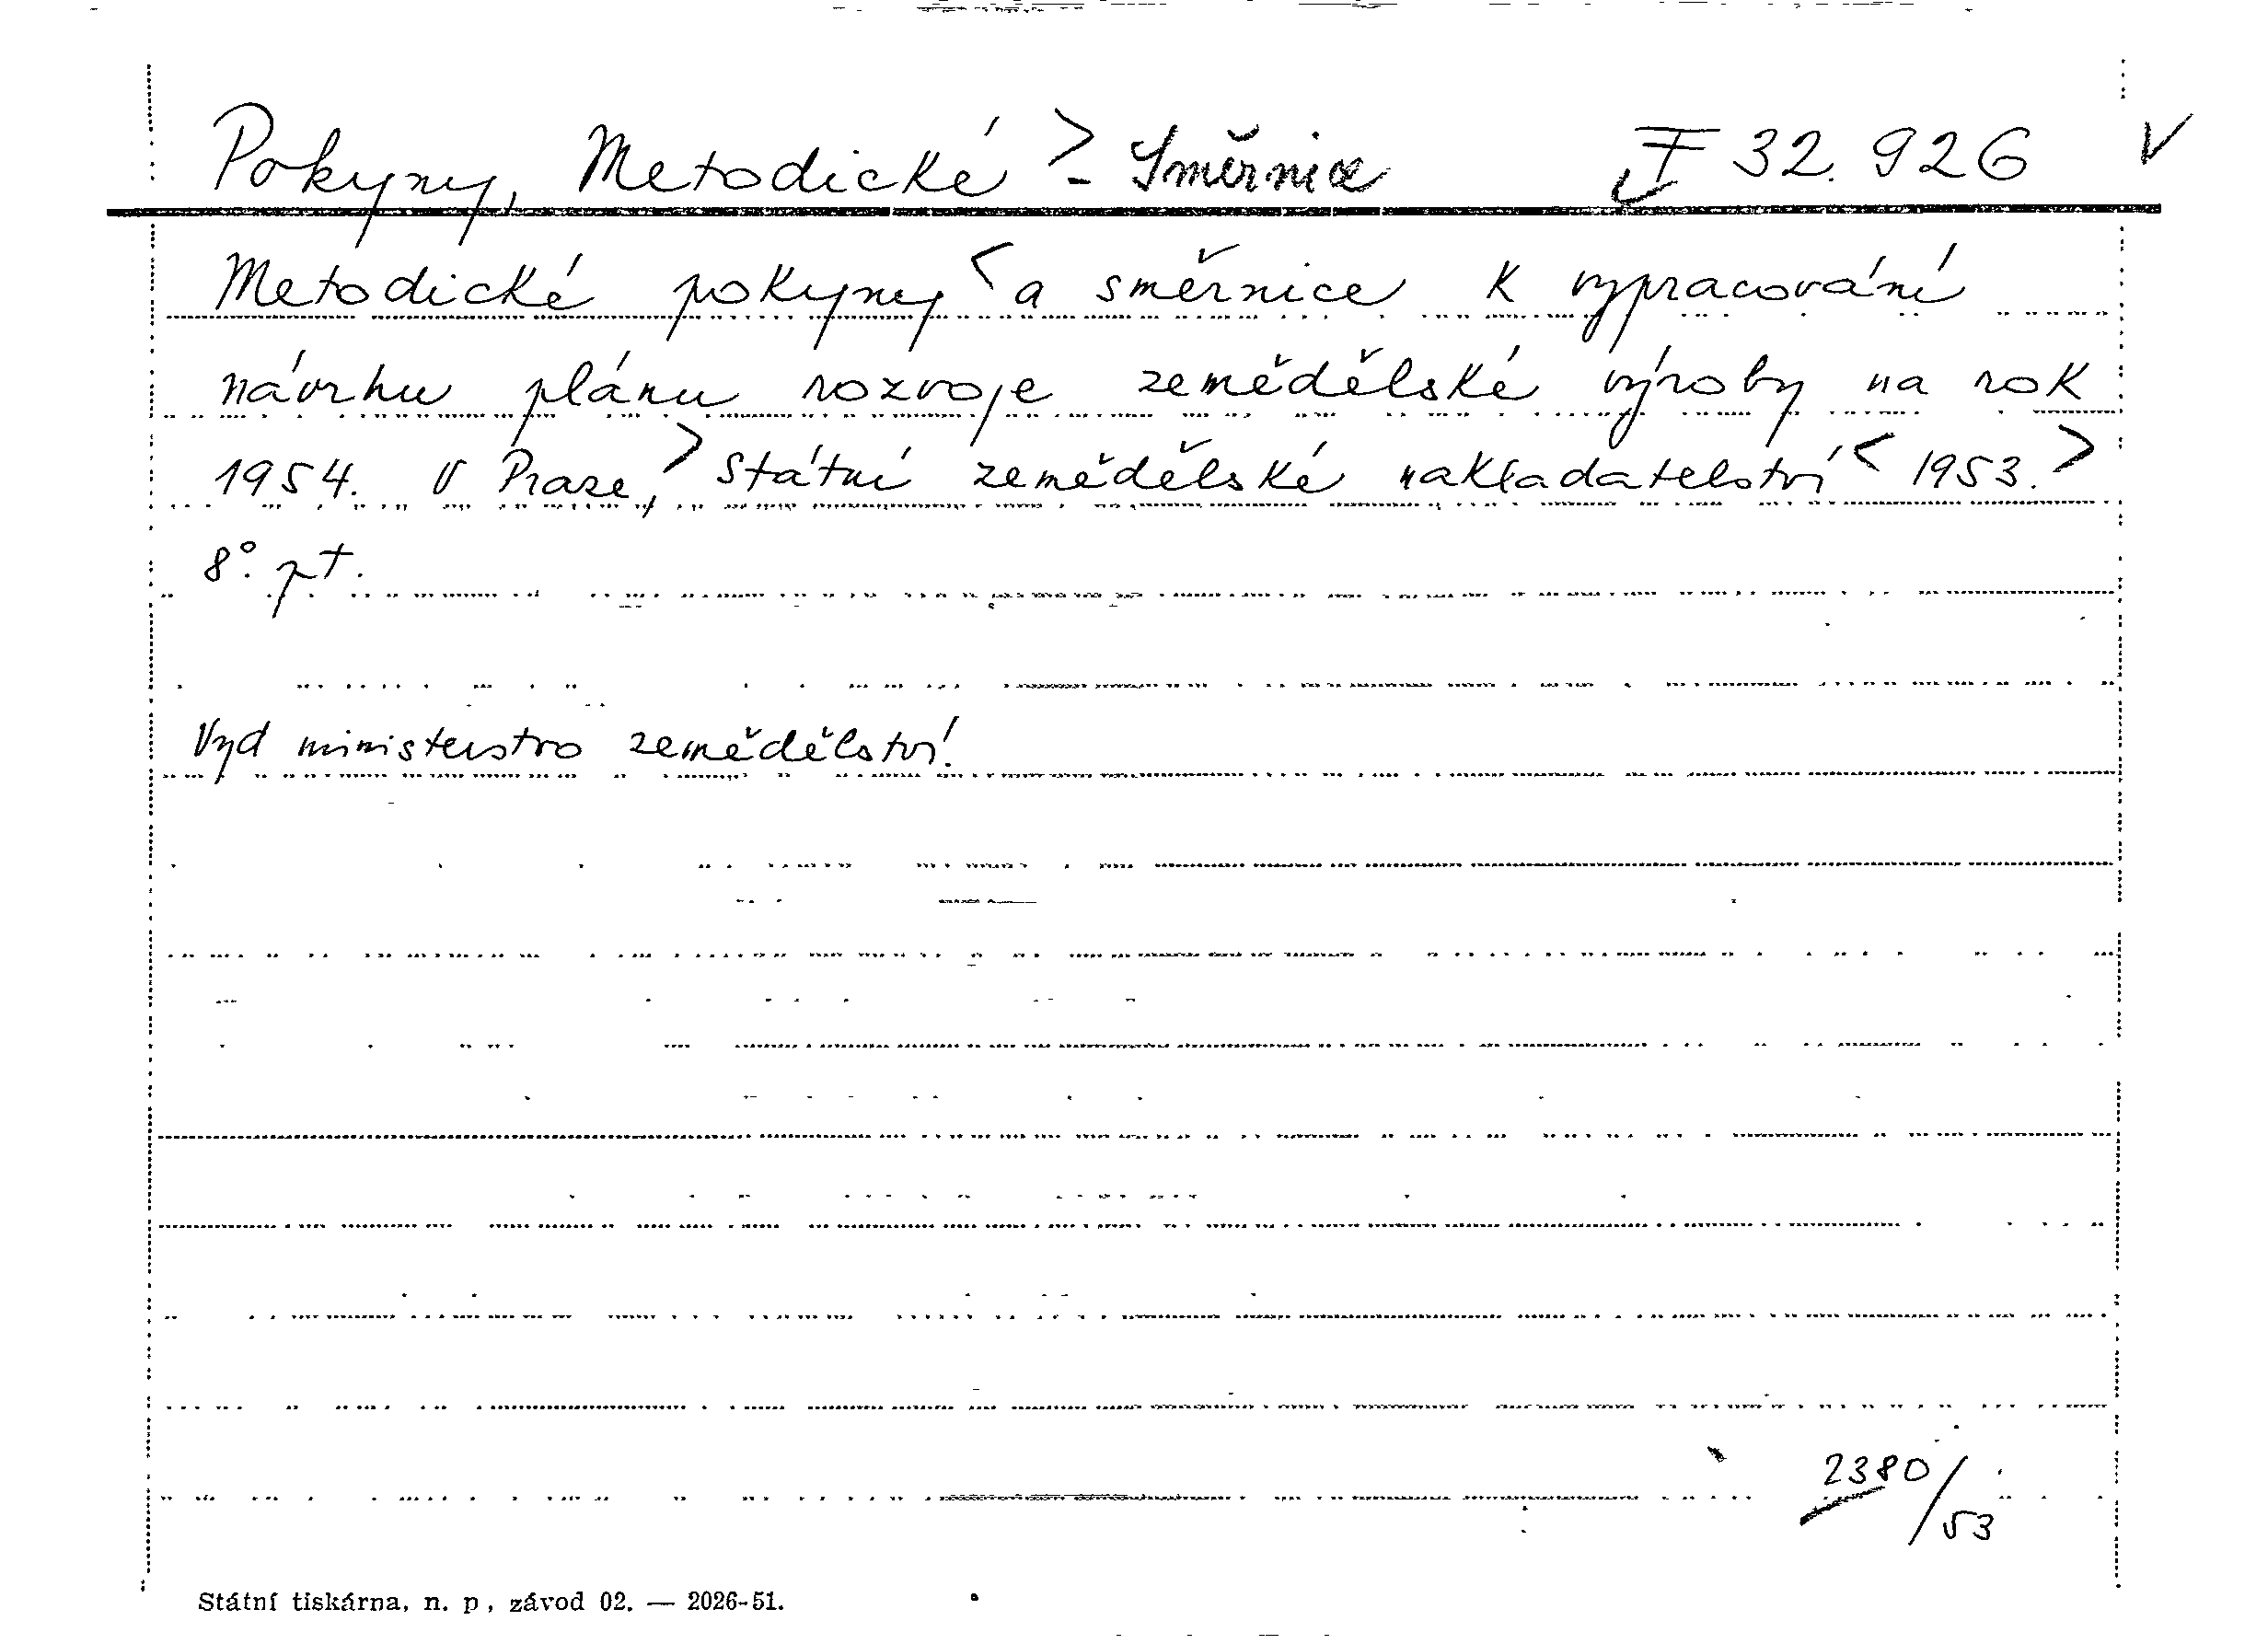 Pokyny, Metodické > - Směrnice F 32.926 V
Metodické pokyny < a směrnice k vypracování
návrhu plánu rozvoje zemědělské výroby na rok
1954. V Praze, > Státní zemědělské nakladatelství < 1953. >
8°. pt.
Vyd ministerstvo zemědělství.
2380/53
Státní tiskárna, n. p., závod 02. — 2026-51.